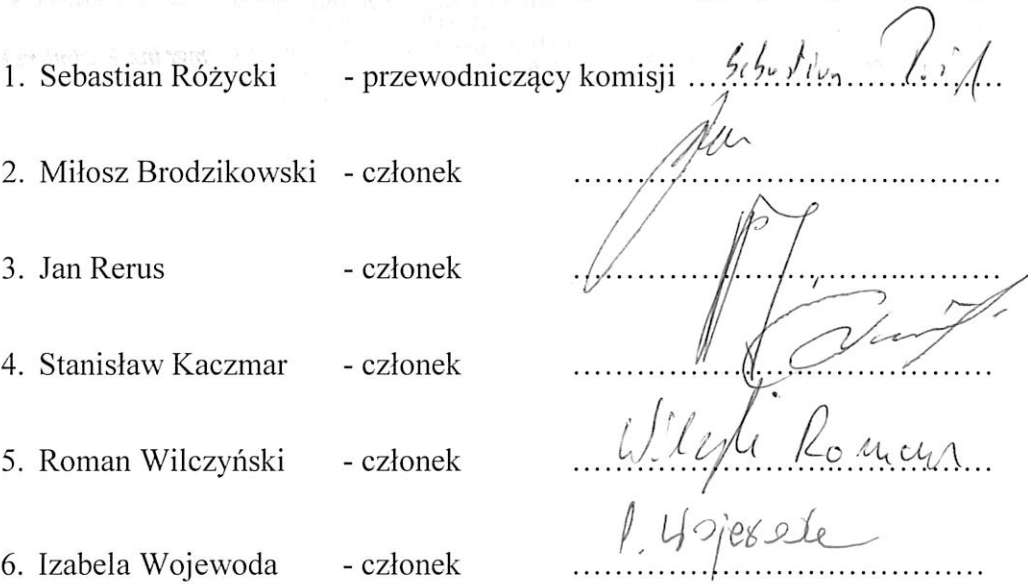 1. Sebastian Różycki - przewodniczący komisji ........................... Sebastian
2. Miłosz Brodzikowski - członek ...........................................
3. Jan Rerus - członek ...........................................
4. Stanisław Kaczmar - członek ..........................................
5. Roman Wilczyński - członek .......................................... Roman
6. Izabela Wojewoda - członek .........................................